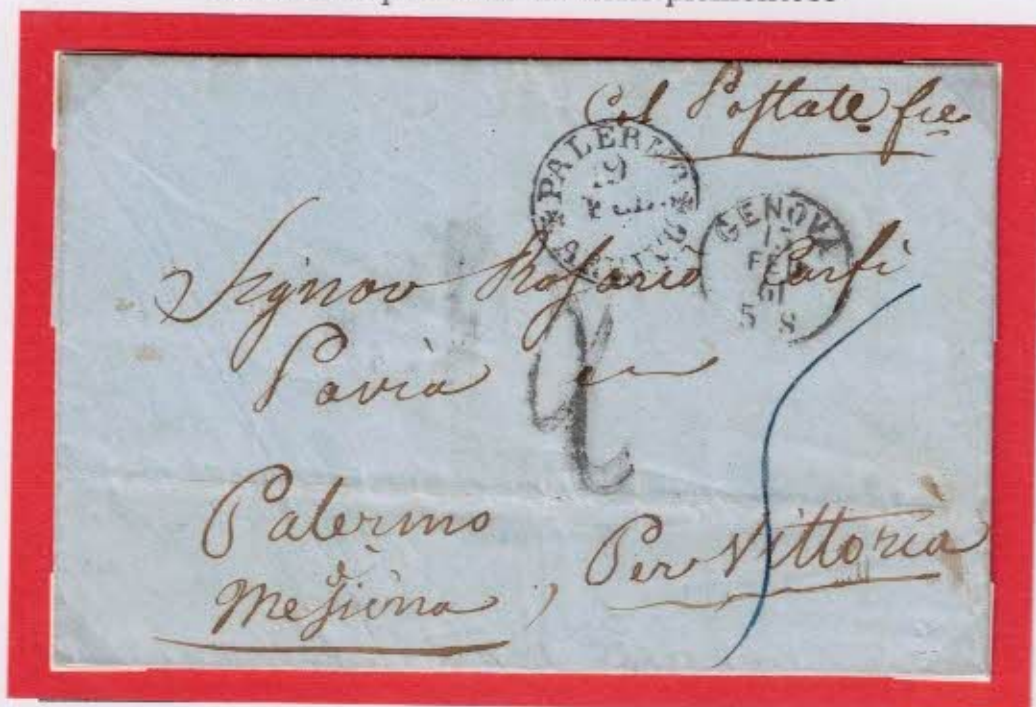 Col Postale fce
PALERMO
19
ARRIVO
GENOVA
FEB
61
5 S
Signor Rosario Carfi
Pavia
2
Palermo
Messina, Per Vittoria